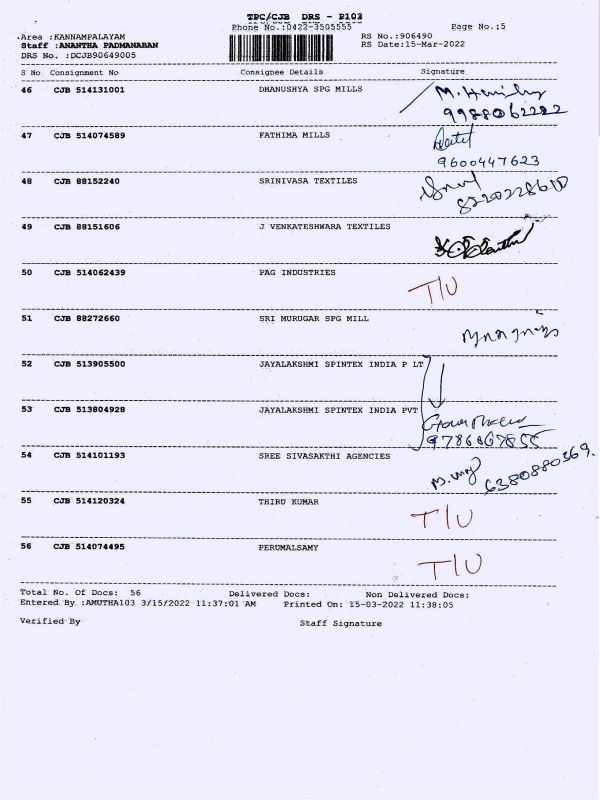 TPC/CJB DRS - P103
Phone No.:0422-3505555
Page No.:5
Area :KANNAMPALAYAM
RS No.:906490
Staff :ANANTHA PADMANABAN
RS Date:15-Mar-2022
DRS No. :DCJB90649005
S No Consignment No Consignee Details Signature
46 CJB 514131001 DHANUSHYA SPG MILLS
9988062282
47 CJB 514074589 FATHIMA MILLS
9600447623
48 CJB 88152240 SRINIVASA TEXTILES
49 CJB 88151606 J VENKATESHWARA TEXTILES
50 CJB 514062439 PAG INDUSTRIES
T/U
51 CJB 88272660 SRI MURUGAR SPG MILL
52 CJB 513905500 JAYALAKSHMI SPINTEX INDIA P LT
53 CJB 513804928 JAYALAKSHMI SPINTEX INDIA PVT
54 CJB 514101193 SREE SIVASAKTHI AGENCIES
6380880369.
55 CJB 514120324 THIRU KUMAR
T/U
56 CJB 514074495 PERUMALSAMY
T/U
Total No. Of Docs: 56 Delivered Docs: Non Delivered Docs:
Entered By :AMUTHA103 3/15/2022 11:37:01 AM Printed On: 15-03-2022 11:38:05
Verified By Staff Signature